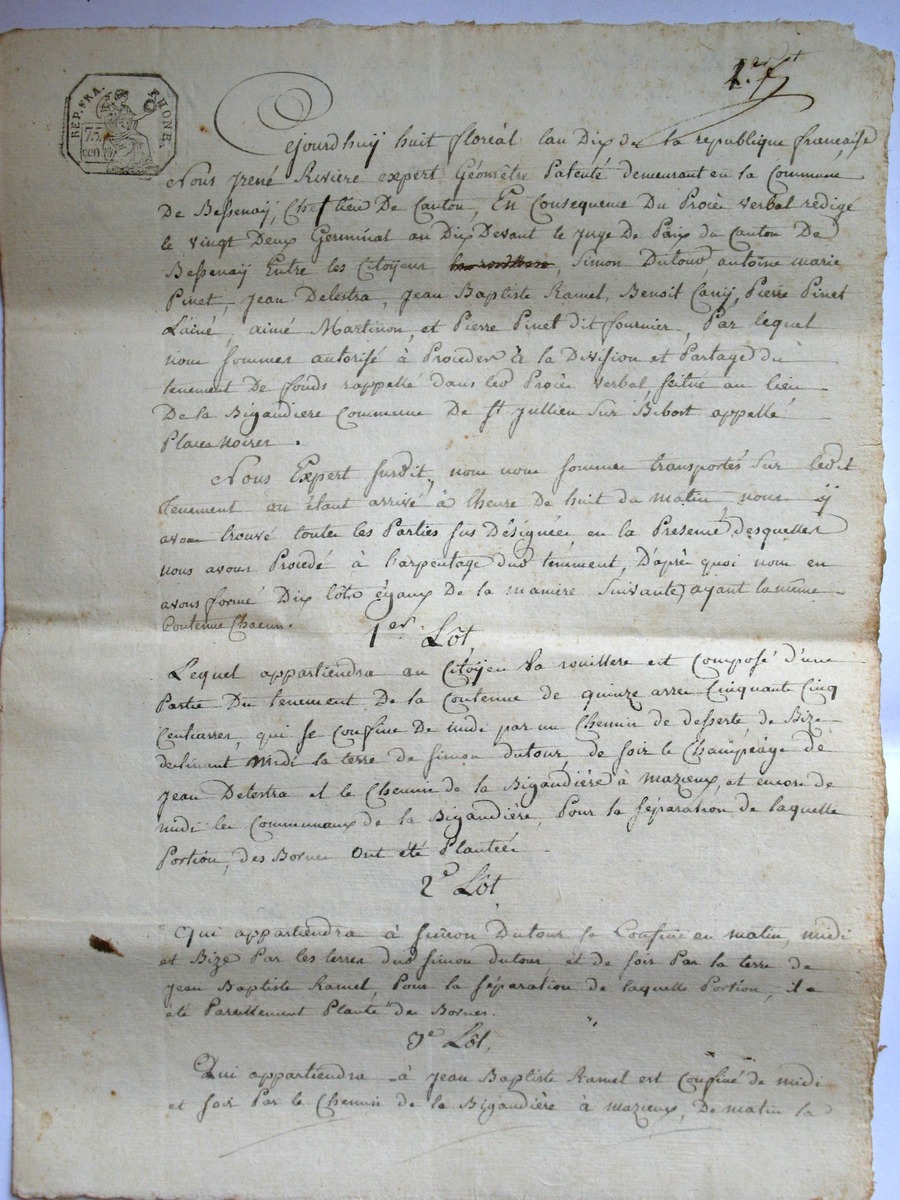 REP. FRA. RHONE.
75 cen
Cejourdhuÿ huit floréal lan Dix de la republique francaise
Nous jrené Riviere expert Géomêtre Patenté demeurant en la Commune
De Bessenaÿ, Chef lieu De Canton, En Consequence Du Procèx verbal redigé
le vingt Deux Germinal an Dix Devant le juge De Paix du Canton De
Bessenaÿ Entre les Citoyens Simon Dutour, antoine marie
Pinet, Jean Delestra, Jean Baptiste Ramel, Benoit Caniÿ, Pierre Pinet
Lainé, aimé Martinon, et Pierre Pinet dit fournier, Par lequel
nous sommes autorisé à Proceder à la Division et Partage du
tenement De fonds rappellé dans led Procès verbal, scitué au lieu
De la Bigaudiere Commune De St jullien Sur Bibost appellé
Places noires.
Nous Expert susdit, nous nous sommes transportés Sur ledit
Tenement ou étant arrivé à Lheure De huit du matin, nous ÿ
avons trouvé toutes les Parties sus Désignées en la Presence desquelles
nous avons Procédé à l'arpentage dud tenement, D'après quoi nous en
avons formé Dix lôts égaux de la maniere Suivante, ayant la même
Contenue Chacun.
1er Lôt
Lequel appartiendra au Citoÿen la rouillere est composé d'une
Partie Du tenement De la Contenue de quinze ares Cinquante Cinq
Centiares, qui se confine De midi par un Chemin de desserte, de Bize
declinant Midi la terre de Simon dutour, de soir le Champéage de
jean Delestra et le Chemin de la Bigaudiére à mazieux, et encore de
midi les Communaux de la Bigaudiére, Pour la séparation de laquelle
Portion, des Bornes Ont été Plantées.
2e Lôt
Qui appartiendra à Simon Dutour se Confine en matin, midi
et Bize Par les terres dud Simon dutour et de soir Par la terre de
jean Baptiste Ramel, Pour la séparation de laquelle Portion, il a
été Pareillement Planté des Bornes.
3e Lôt,
Qui appartiendra à jean Baptiste Ramel est confiné de midi
et soir Par le Chemin de la Bigaudière à mazieux, De matin la